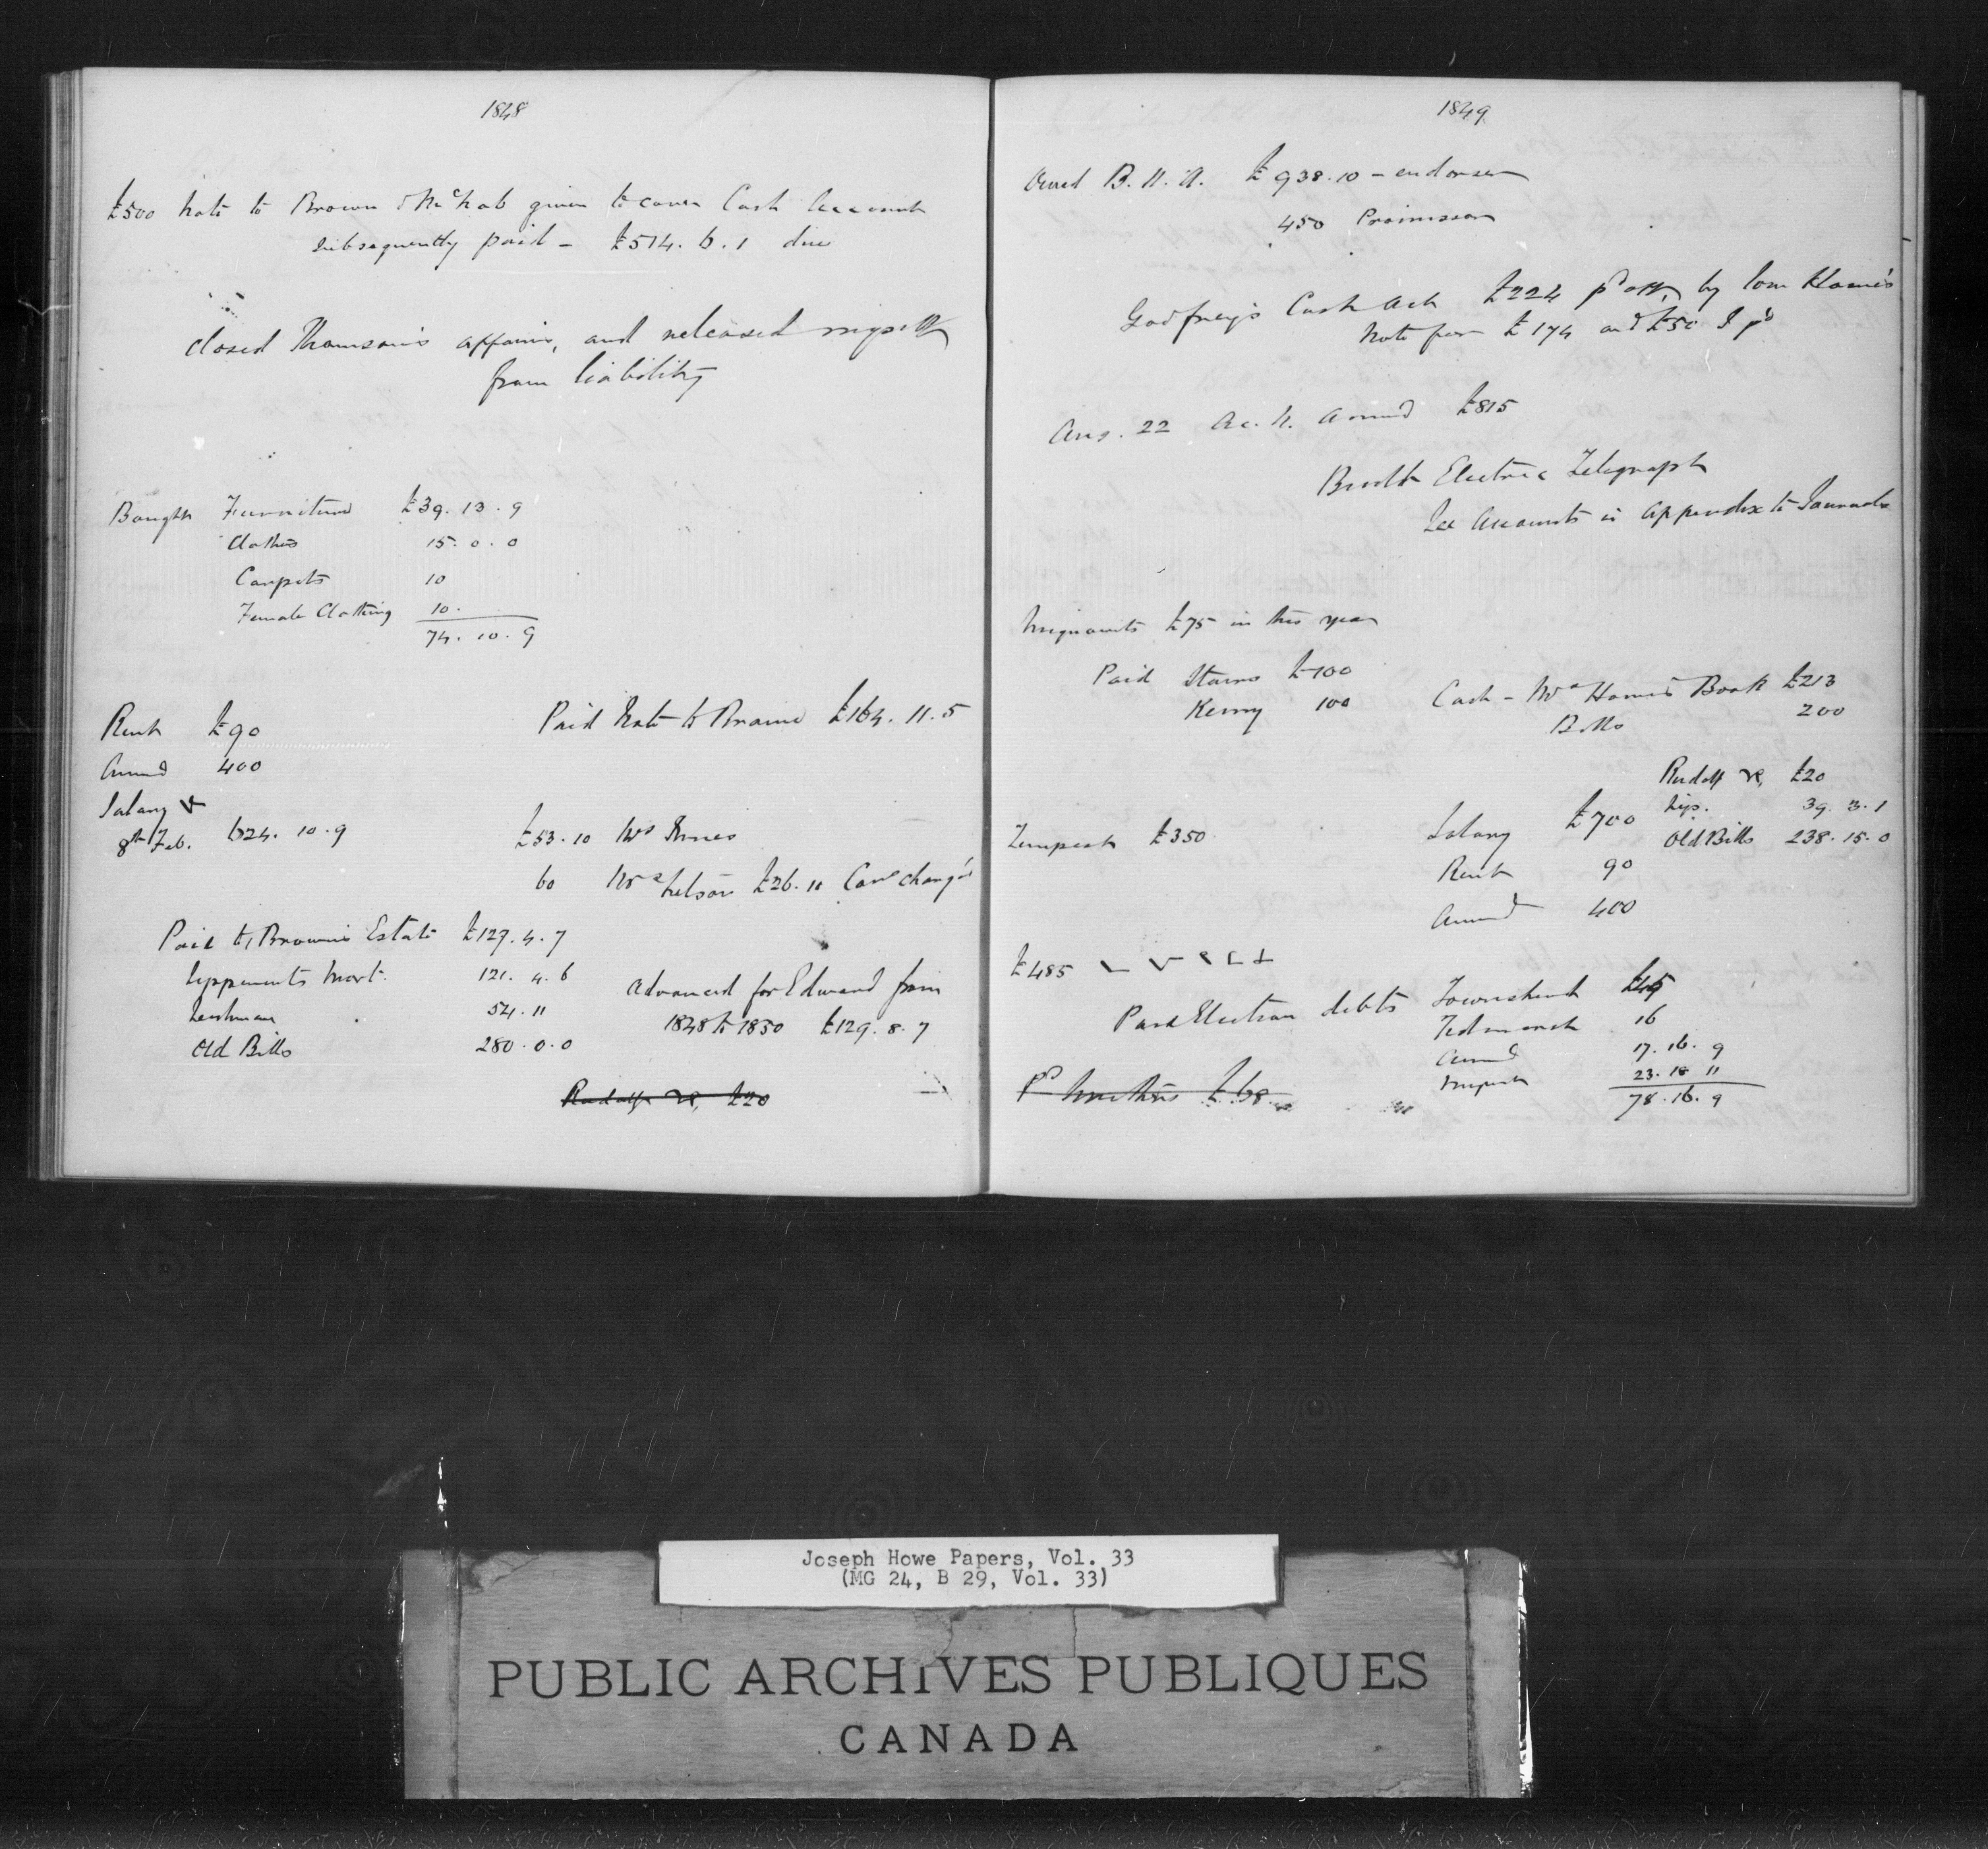 1848
£500 Note to Brown & McNab given to cover Cash Account
subsequently paid - £514. 6. 1 due
Closed Thomson's affairs, and released myself
from liability
Bought Furniture £39. 13. 9
Clothes 15. 0. 0
Carpets 10
Female Clothing 10.
74. 10. 9
Rent £90
Annand 400
Salary &
8th Feb. 624. 10. 9
Paid Note to Braine £164. 11. 5
£53. 10 Wm Innes
60 Wm Nelson £26. 11
Paid to Brown's Estate £127. 4. 7
Lippencotts Mort. 121. 4. 6
Leishman 54. 11
Old Bills 280. 0. 0
Advanced for Edward from
1848 to 1850 £129. 8. 7
Rudolf &c, £20
1849
Owed B. N. A. £938. 10 - endorser
450 Promissor
Godfrey's Cash Act £224 pd off, by
Note for £174 and £50 I pd
Aug. 22 Annand £815
Built Electric Telegraph
See Accounts in Appendix to Journals
£75 in this year
Paid Starrs £100
Kenny 100
Cash - Book £213
Bills 200
Rudolf &c, £20
Lip. 39. 3. 1
Old Bills 238. 15. 0
Tempest £350
Salary £700
Rent 90
Annand 400
£485
Paid Election debts Townshend
16
Annand 17. 16. 9
23. 18 11
78. 16. 9
Pd £68
Joseph Howe Papers, Vol. 33
(MG 24, B 29, Vol. 33)
PUBLIC ARCHIVES PUBLIQUES
CANADA